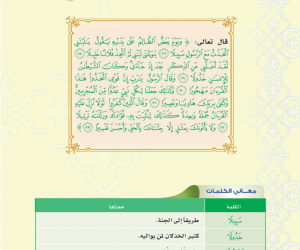 قال تعالى: ﴿ وَيَوْمَ يَعَضُّ الظَّالِمُ عَلَىٰ يَدَيْهِ يَقُولُ يَٰلَيْتَنِي
اتَّخَذْتُ مَعَ الرَّسُولِ سَبِيلًا ﴿٢٧﴾ يَٰوَيْلَتَىٰ لَيْتَنِي لَمْ أَتَّخِذْ فُلَانًا خَلِيلًا ﴿٢٨﴾
لَّقَدْ أَضَلَّنِي عَنِ الذِّكْرِ بَعْدَ إِذْ جَاءَنِي وَكَانَ الشَّيْطَٰنُ
لِلْإِنسَٰنِ خَذُولًا ﴿٢٩﴾ وَقَالَ الرَّسُولُ يَٰرَبِّ إِنَّ قَوْمِي اتَّخَذُوا هَٰذَا
الْقُرْءَانَ مَهْجُورًا ﴿٣٠﴾ وَكَذَٰلِكَ جَعَلْنَا لِكُلِّ نَبِيٍّ عَدُوًّا مِّنَ الْمُجْرِمِينَ
وَكَفَىٰ بِرَبِّكَ هَادِيًا وَنَصِيرًا ﴿٣١﴾ وَقَالَ الَّذِينَ كَفَرُوا لَوْلَا نُزِّلَ عَلَيْهِ
الْقُرْءَانُ جُمْلَةً وَٰحِدَةً كَذَٰلِكَ لِنُثَبِّتَ بِهِ فُؤَادَكَ وَرَتَّلْنَٰهُ تَرْتِيلًا
﴿٣٢﴾ وَلَا يَأْتُونَكَ بِمَثَلٍ إِلَّا جِئْنَٰكَ بِالْحَقِّ وَأَحْسَنَ تَفْسِيرًا ﴿٣٣﴾
معاني الكلمات
الكلمة معناها
سَبِيلًا طريقاً إلى الجنة.
خَذُولًا كثير الخذلان لمن يواليه.